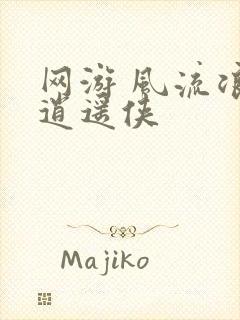 网游风流
逍遥侠
Majiko